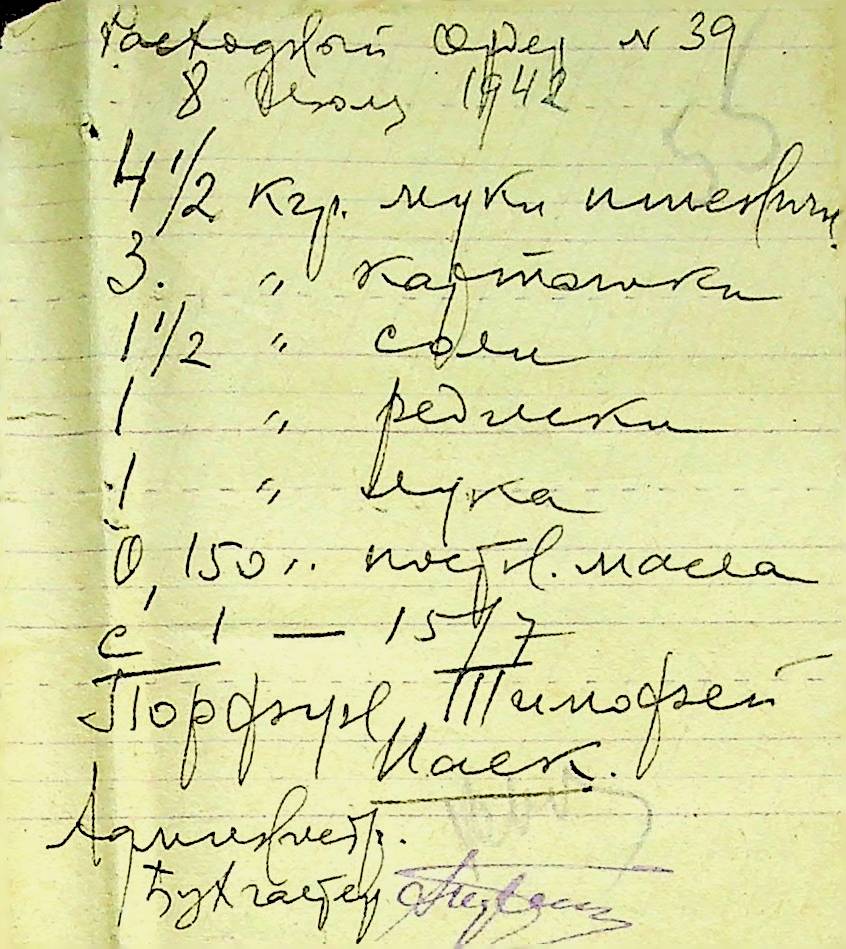 Расходный Ордер N 39
8 Июля 1942
4 1/2 кгр. муки пшеничн.
3. " картошки
1 1/2 " соли
1 " редиски
1 " лука
0,150 г. постн. масла
с 1 — 15/7
Тимофей
Паек.
Администр.
Бухгалтер